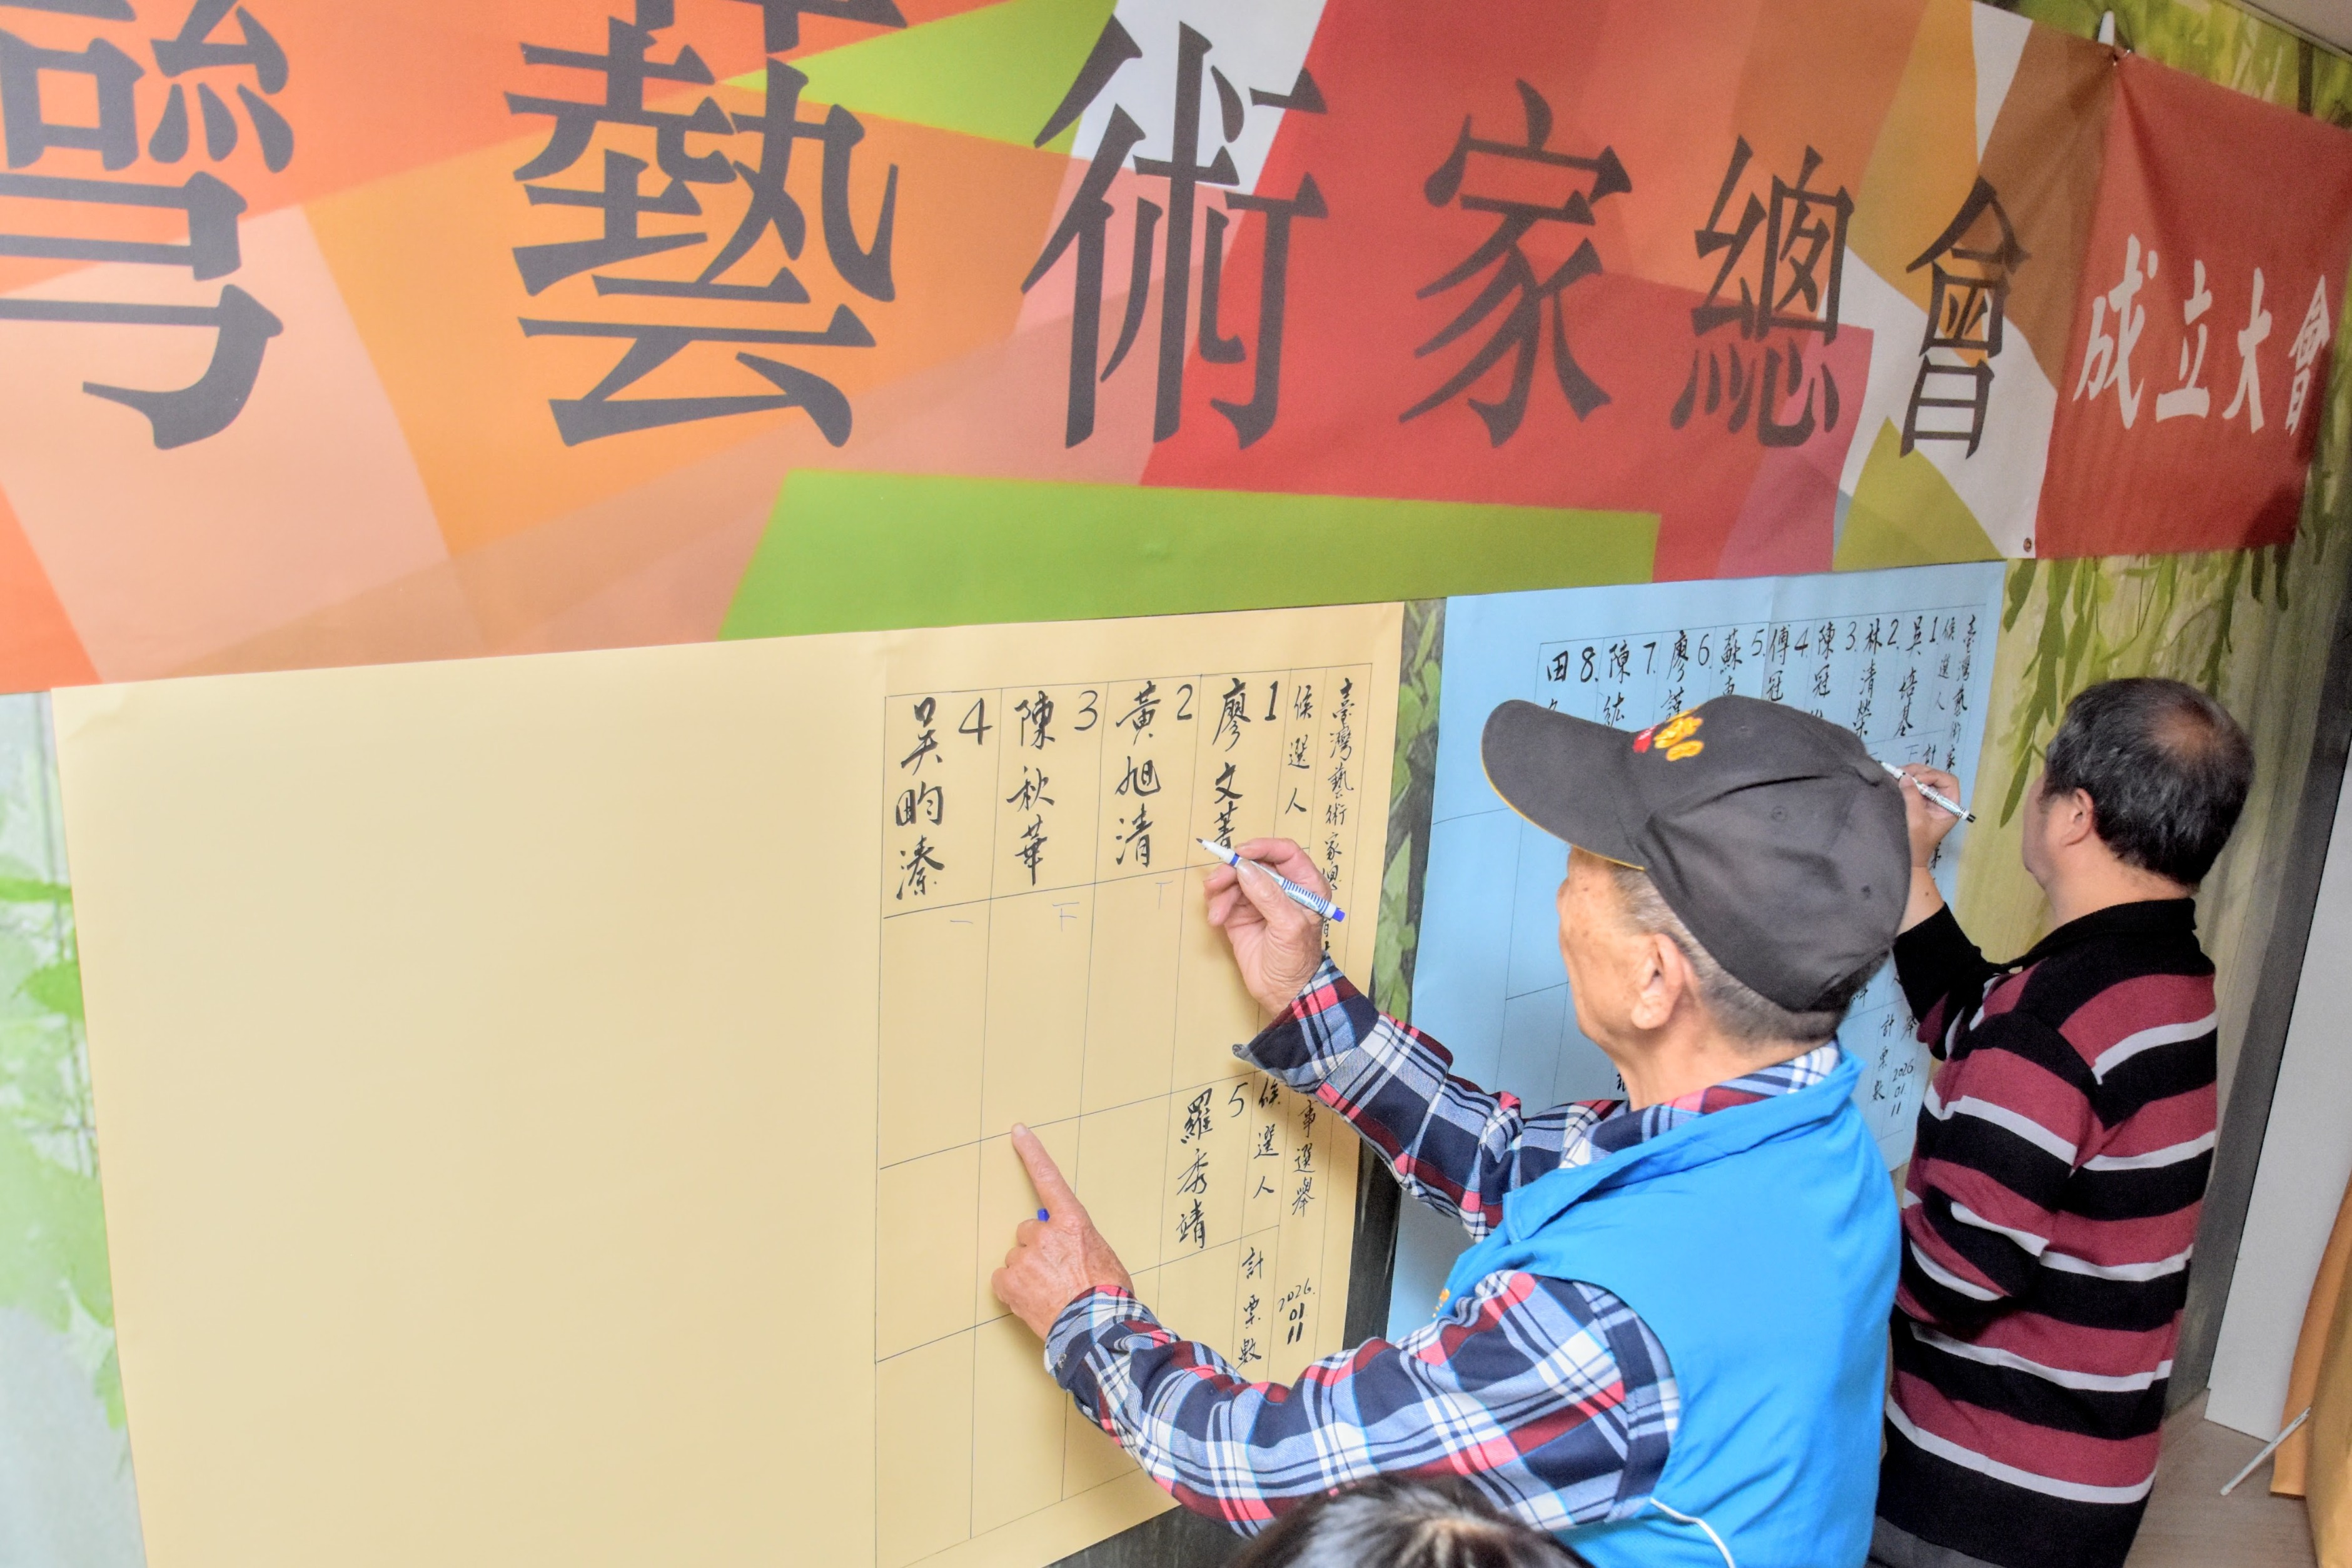 灣藝術家總會
成立大會
臺灣藝術家總
事選舉
2026.
01.
11
候選人
1
廖文
2
黃旭清
3
陳秋華
4
吳畇溱
候選人
計票數
5
羅秀靖
臺灣藝術家
2026
01.
11
候選人
計
計票數
1
吳培基
2.
林清榮
3.
陳冠
4.
傅冠
5.
蘇
6.
廖
7.
陳
8.
田